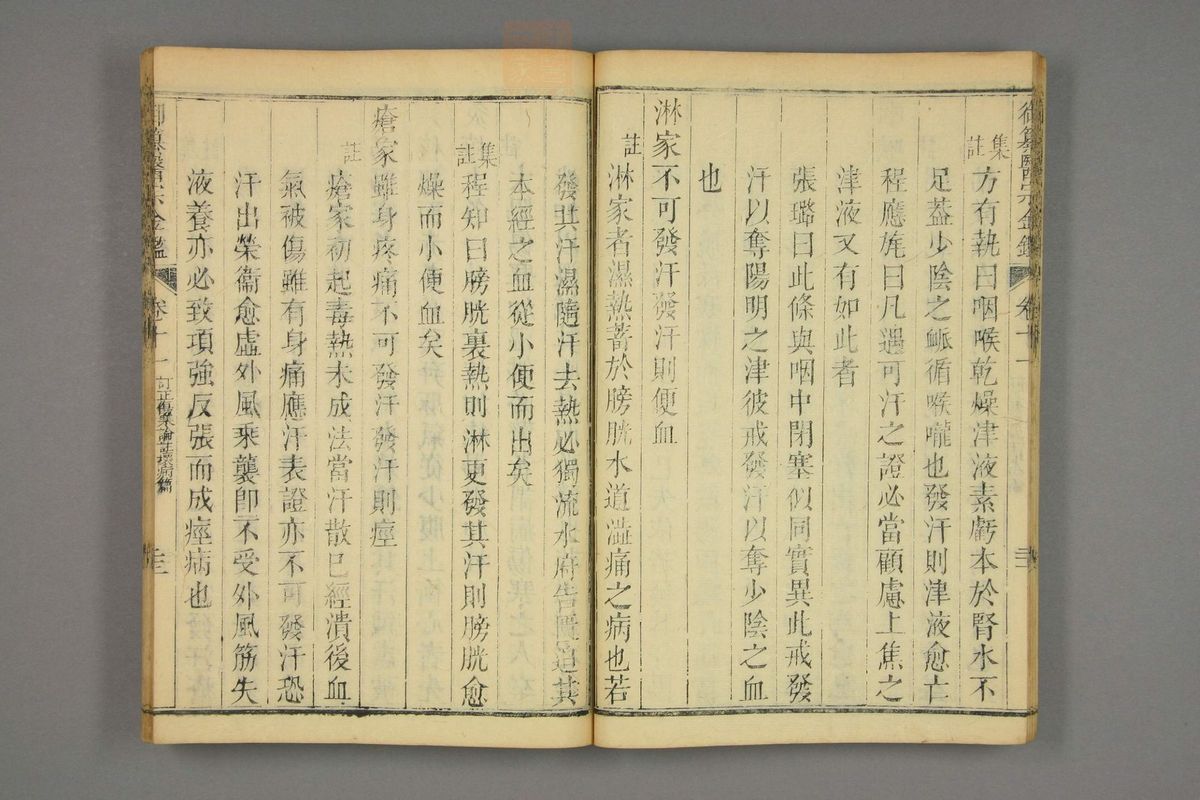 御纂醫宗金鑑
卷十一
集註
方有執曰咽喉乾燥津液素虧本於腎水不
足蓋少陰之脈循喉嚨也發汗則津液愈亡
程應旄曰凡遇可汗之證必當顧慮上焦之
津液又有如此者
張璐曰此條與咽中閉塞似同實異此戒發
汗以奪陽明之津彼戒發汗以奪少陰之血
也
淋家不可發汗發汗則便血
註
淋家者濕熱蓄於膀胱水道澁痛之病也若
發其汗濕隨汗去熱必獨流水府告匱迫其
本經之血從小便而出矣
集註
程知曰膀胱裏熱則淋更發其汗則膀胱愈
燥而小便血矣
瘡家雖身疼痛不可發汗發汗則痙
註
瘡家初起毒熱未成法當汗散已經潰後血
氣被傷雖有身痛應汗表證亦不可發汗恐
汗出榮衞愈虛外風乘襲卽不受外風筋失
液養亦必致項強反張而成痙病也
御纂醫宗金鑑
卷十一
訂正傷寒論註壞病篇